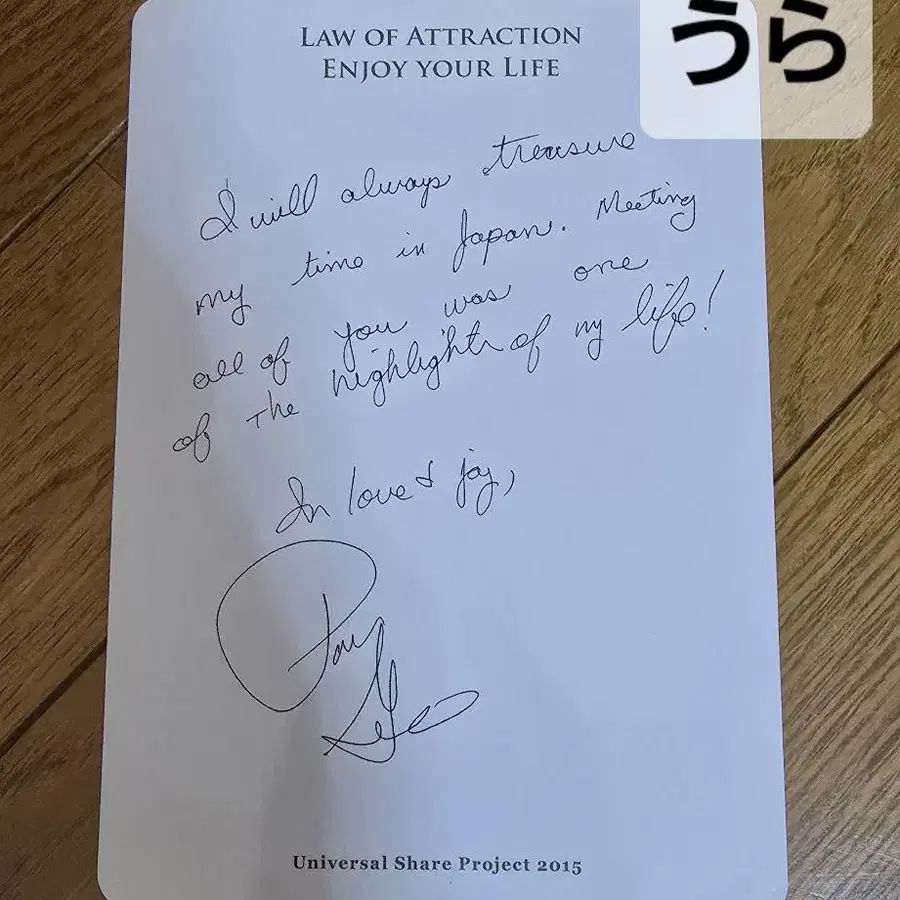 うら
LAW OF ATTRACTION
ENJOY YOUR LIFE
I will always treasure
my time in Japan. Meeting
all of you was one
of The highlights of my life!
In love & joy,
Universal Share Project 2015